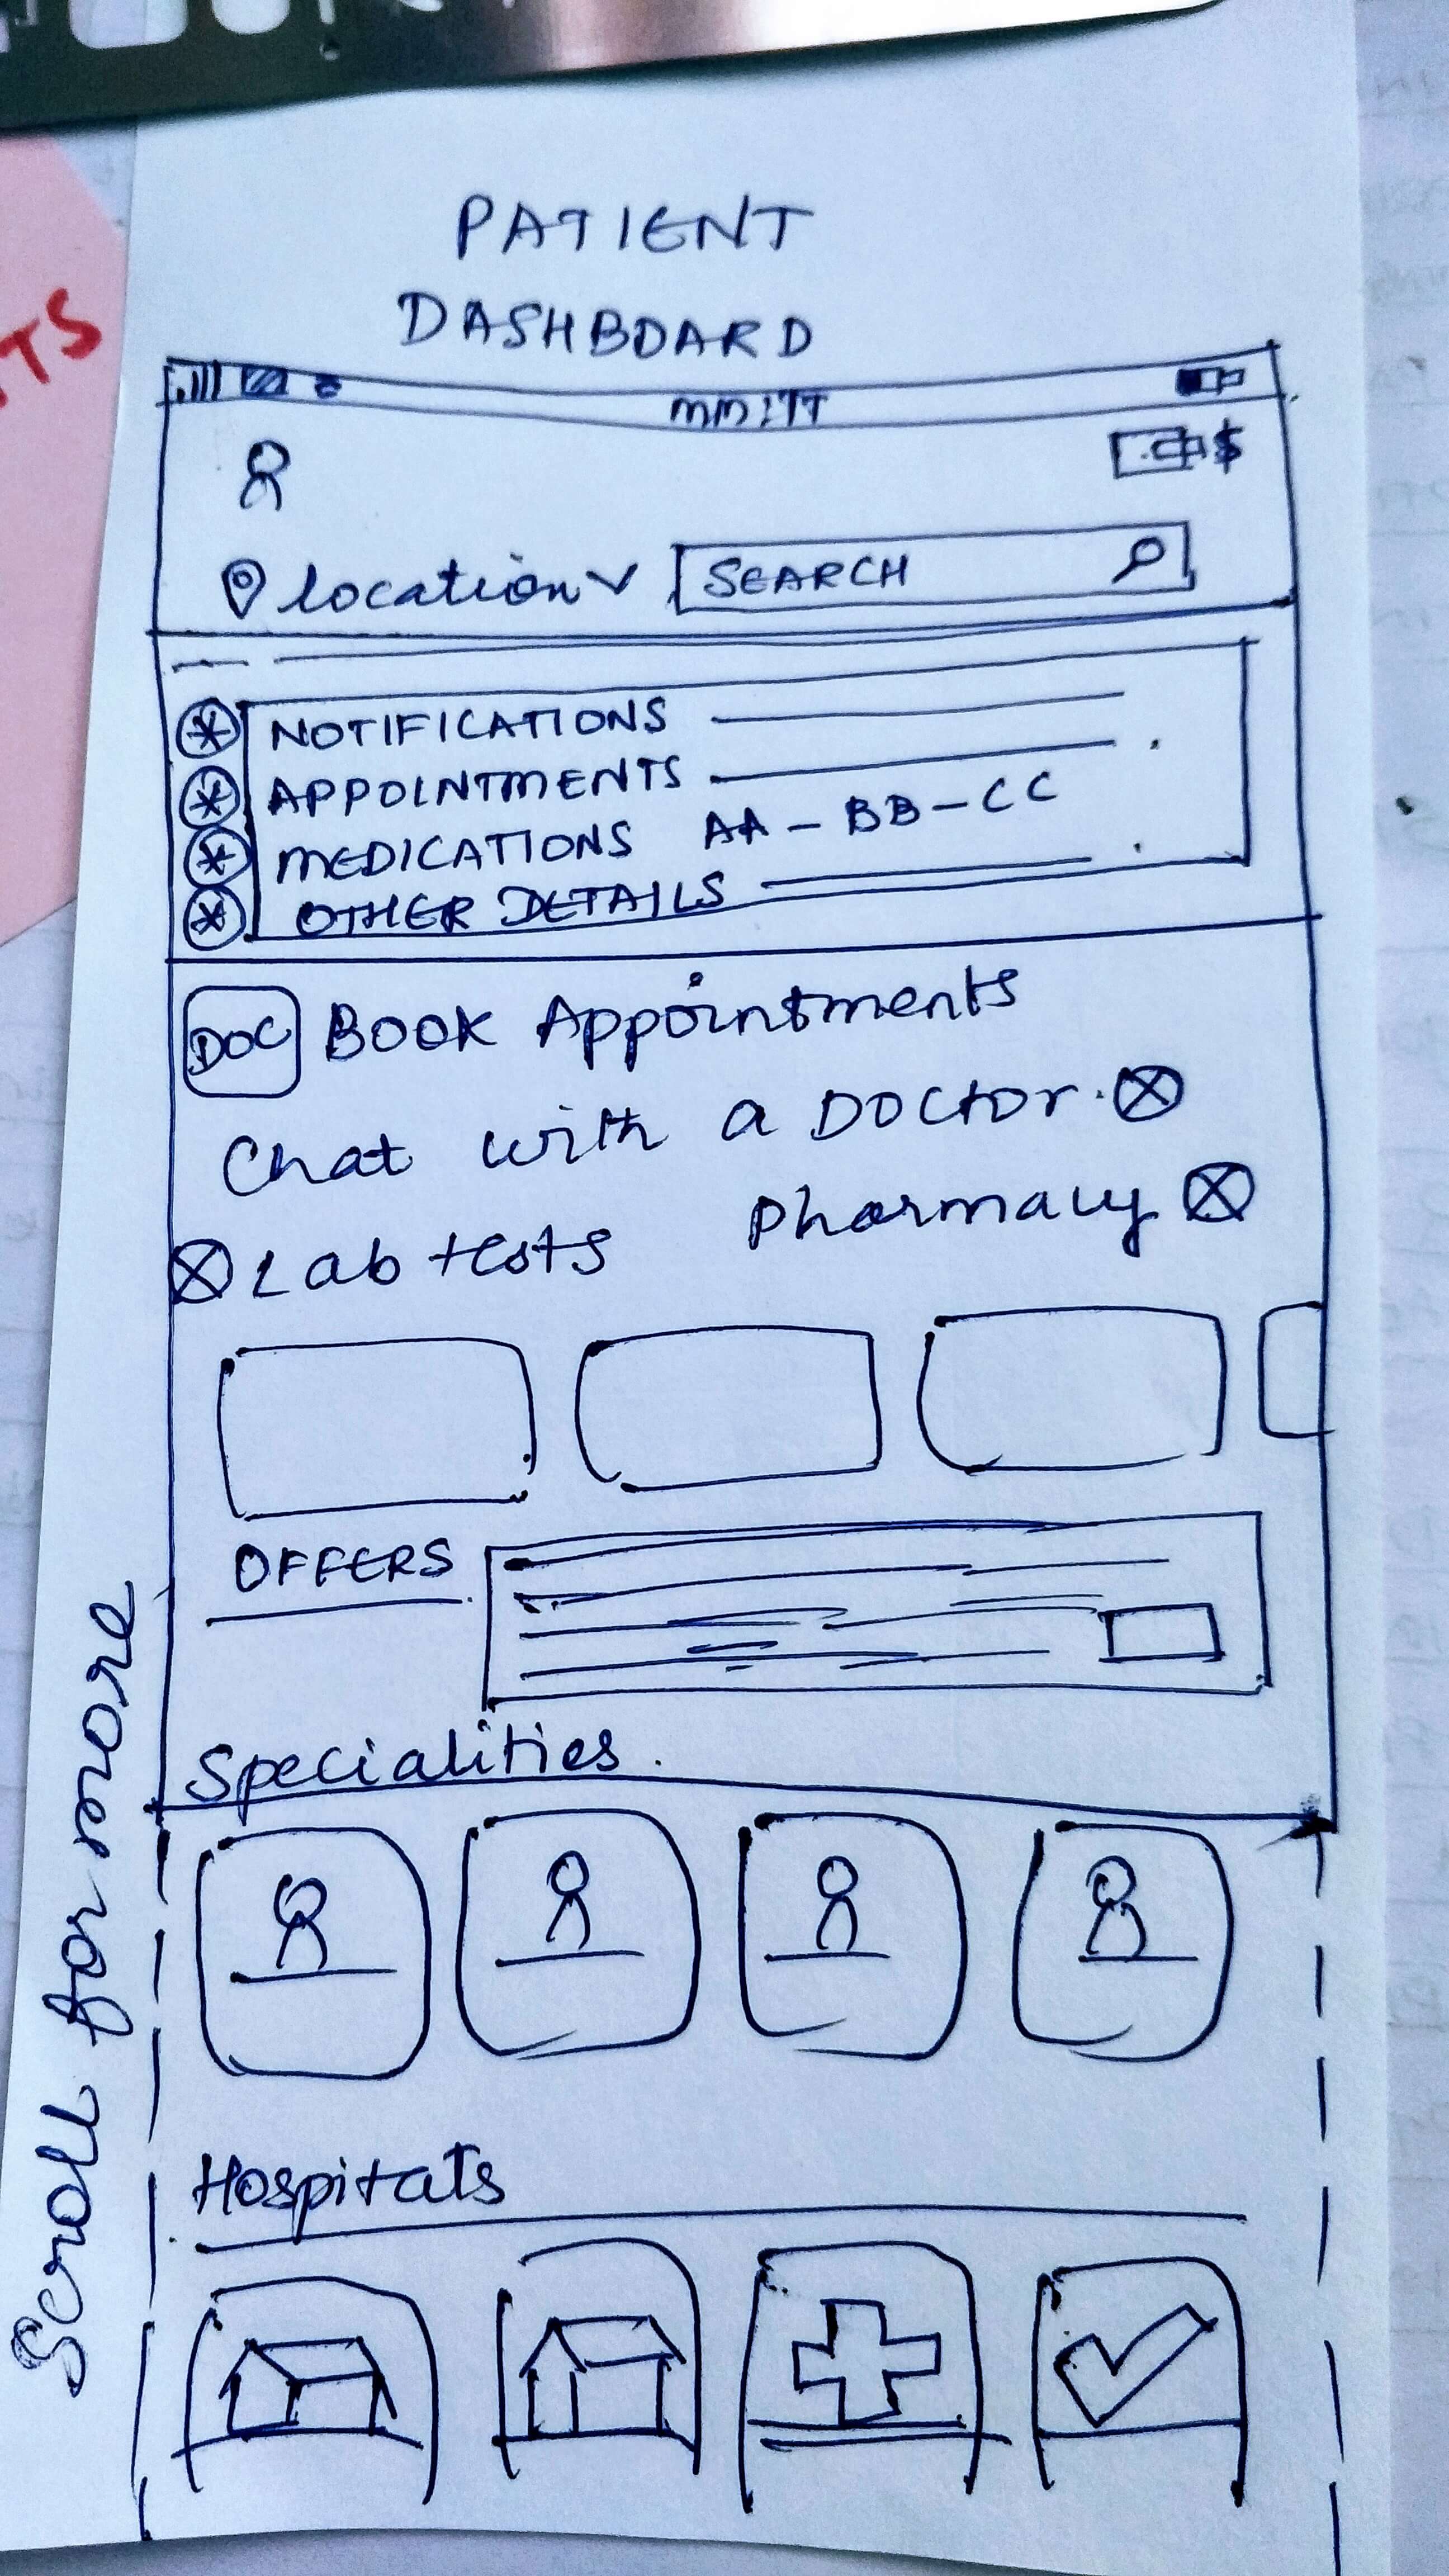 PATIENT
DASHBOARD
mm:TT
$
location
SEARCH
NOTIFICATIONS
APPOINTMENTS
MEDICATIONS AA-BB-CC
OTHER DETAILS
DOC BOOK Appointments
Chat with a Doctor.
Lab tests
Pharmacy
OFFERS
Specialities.
Hospitals
Scroll for more
TS